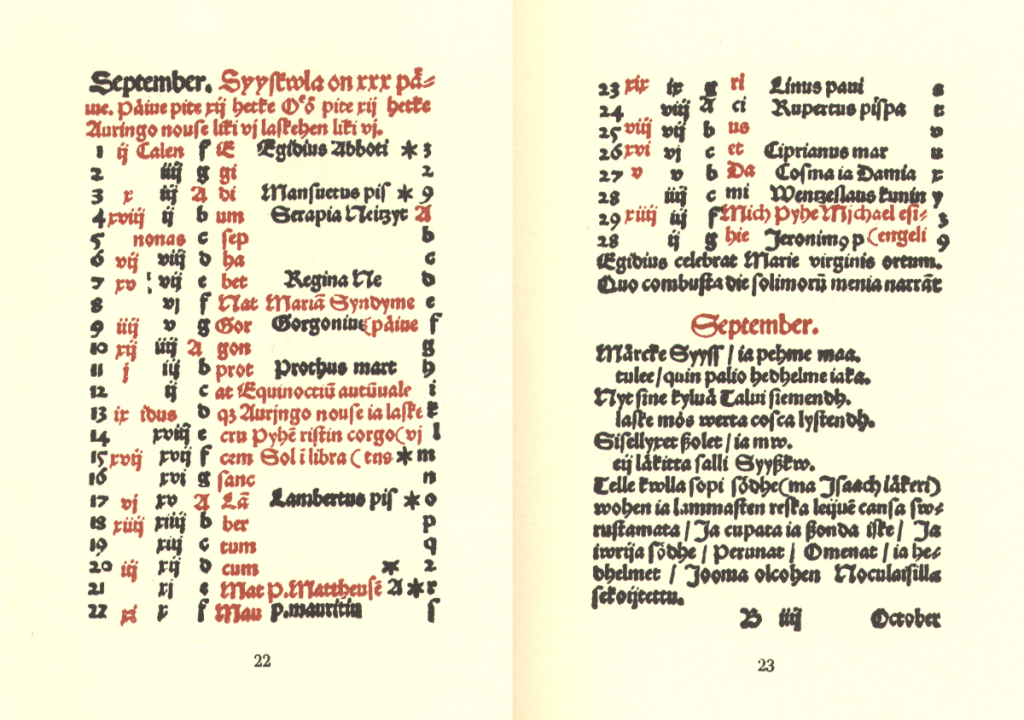 September. Syyskwla on xxx pä⸗
iue. Päiue pite xij hetke Oeö pite xij hetke
Auringo nouse liki vj laskehen liki vj.
1 ij Calen f E Egidius Abboti * 3
2 iiij g gi 2
3 x iij A di Mansuetus pis * 9
4 xviij ij b um Serapia Neitzyt A
5 nonas c sep b
6 vij viij d ha c
7 xv vij e bet Regina Ne d
8 vj f Nat Mariā Syndyme e
9 iiij v g Gor Gorgonius (päiue f
10 xij iiij A gon g
11 j iij b prot Prothus mart h
12 ij c at Equinoctiū autūuale i
13 ix idus d qz Auringo nouse ia laske k
14 xviij e cru Pyhē ristin corgo (vj l
15 xvij xvij f cem Sol ī libra (tns * m
16 xvi g sanc n
17 vj xv A Lā Lambertus pis * o
18 xiiij xiiij b ber p
19 xiij c tum q
20 iij xij d cum * 2
21 xj e Mat p. Mattheusē A * r
22 xi x f Mau p. mauritiu s
23 xix ix g ri Linus paui s
24 viij A ci Rupertus pispa t
25 viij vij b us v
26 xvi vj c et Ciprianus mar u
27 v v b Da Cosma ia Damia x
28 iiij c mi Wentzeslaus kunin y
29 xiij iij f Mich Pyhe Mjchael esi⸗ 3
28 ij g hie Jeronim9 p (engeli 9
Egidius celebrat Marie virginis ortum.
Quo combusta die solimorū menia narrāt
September.
Märcke Syyss / ia pehme maa.
tulee / quin palio hedhelme iaka.
Nyt sine kyluä Talui siemendh.
laske mös werta cosca lystendh.
Sisellyxet ßolet / ia mw.
eij läkitta salli Syyßkw.
Telle kwlla sopi södhe (ma Isaach läkeri)
wohen ia Lammasten reska leiuē cansa sw⸗
rustamata / Ja cupata ia ßonda iske / Ja
iwrija södhe / Perunat / Omenat / ia he⸗
dhelmet / Jooma olcohen Noculaisilla
sekoijtettu.
B iiij October
22
23